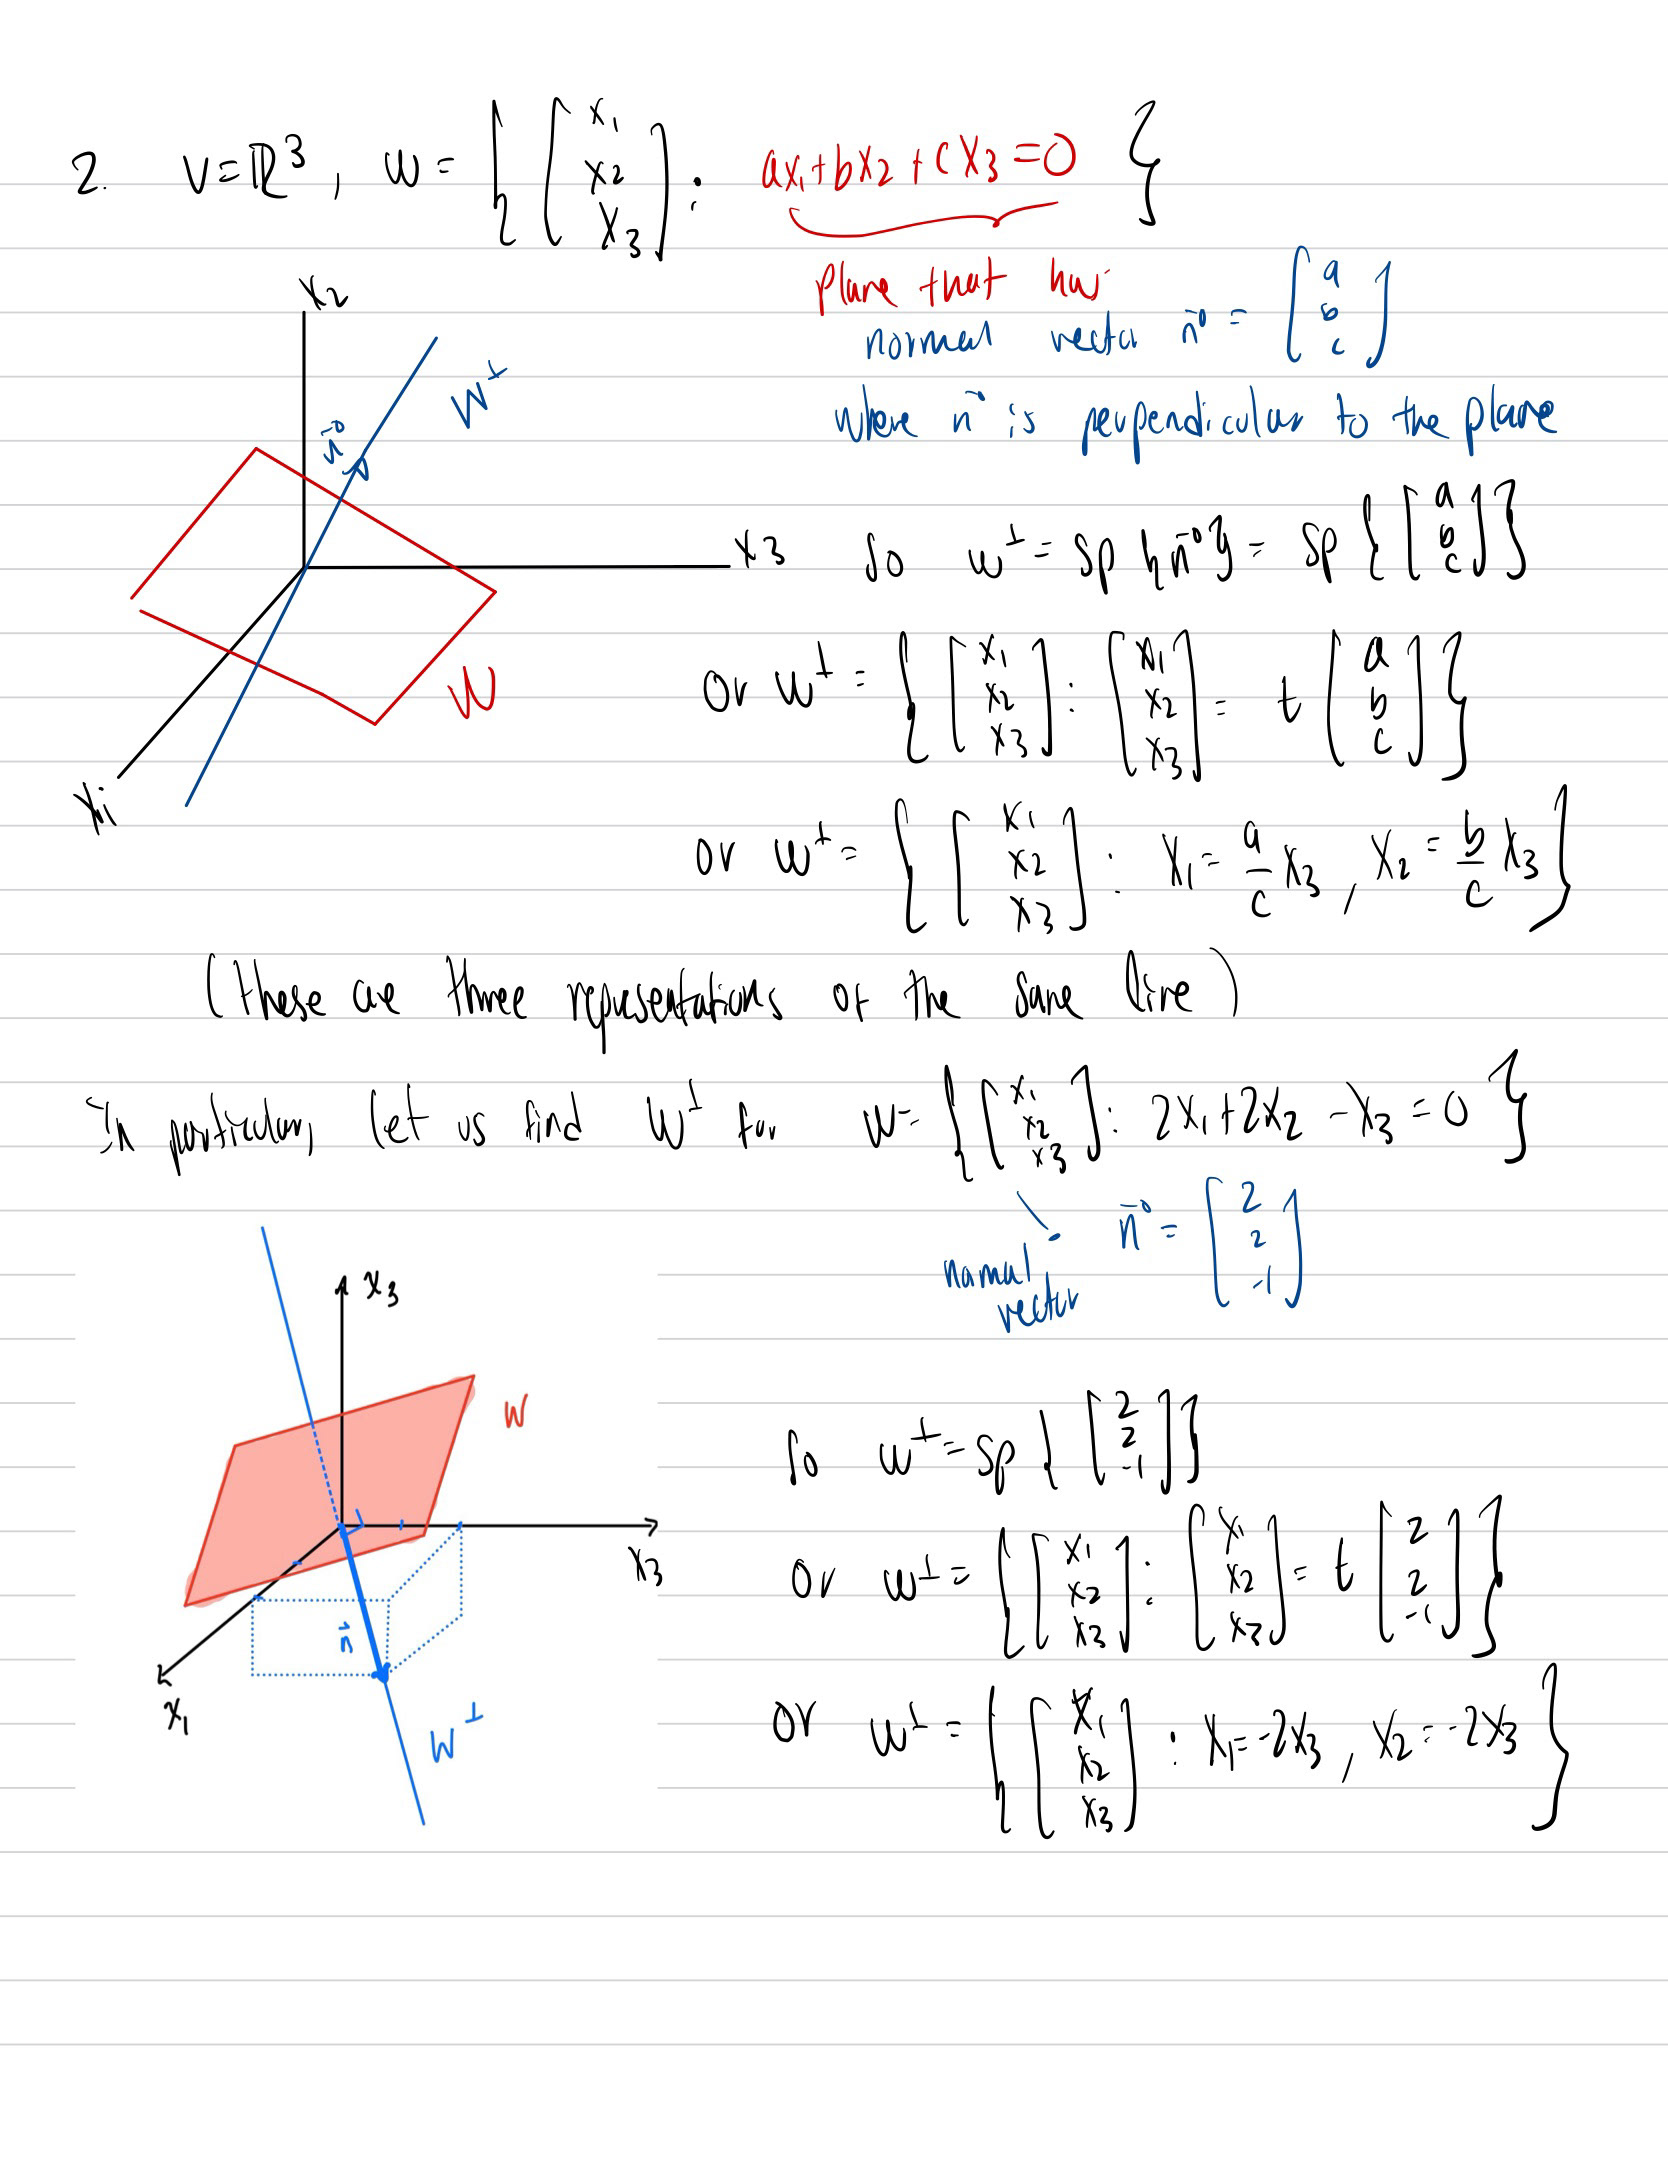 2. V = ℝ³, W = { [x₁ x₂ x₃] : ax₁+bx₂+cx₃=0 }
plane that has
normal vector n⃗ = [a b c]
where n⃗ is perpendicular to the plane
x₂
W⊥
n⃗
x₃
W
x₁
So W⊥ = sp {n⃗} = sp { [a b c] }
or W⊥ = { [x₁ x₂ x₃] : [x₁ x₂ x₃] = t [a b c] }
or W⊥ = { [x₁ x₂ x₃] : x₁ = a/c x₃, x₂ = b/c x₃ }
(these are three representations of the same line)
In particular, let us find W⊥ for W = { [x₁ x₂ x₃] : 2x₁+2x₂-x₃=0 }
normal vector n⃗ = [2 2 -1]
x₃
W
x₃
n⃗
x₁
W⊥
So W⊥ = sp { [2 2 -1] }
or W⊥ = { [x₁ x₂ x₃] : [x₁ x₂ x₃] = t [2 2 -1] }
or W⊥ = { [x₁ x₂ x₃] : x₁=-2x₃, x₂=-2x₃ }